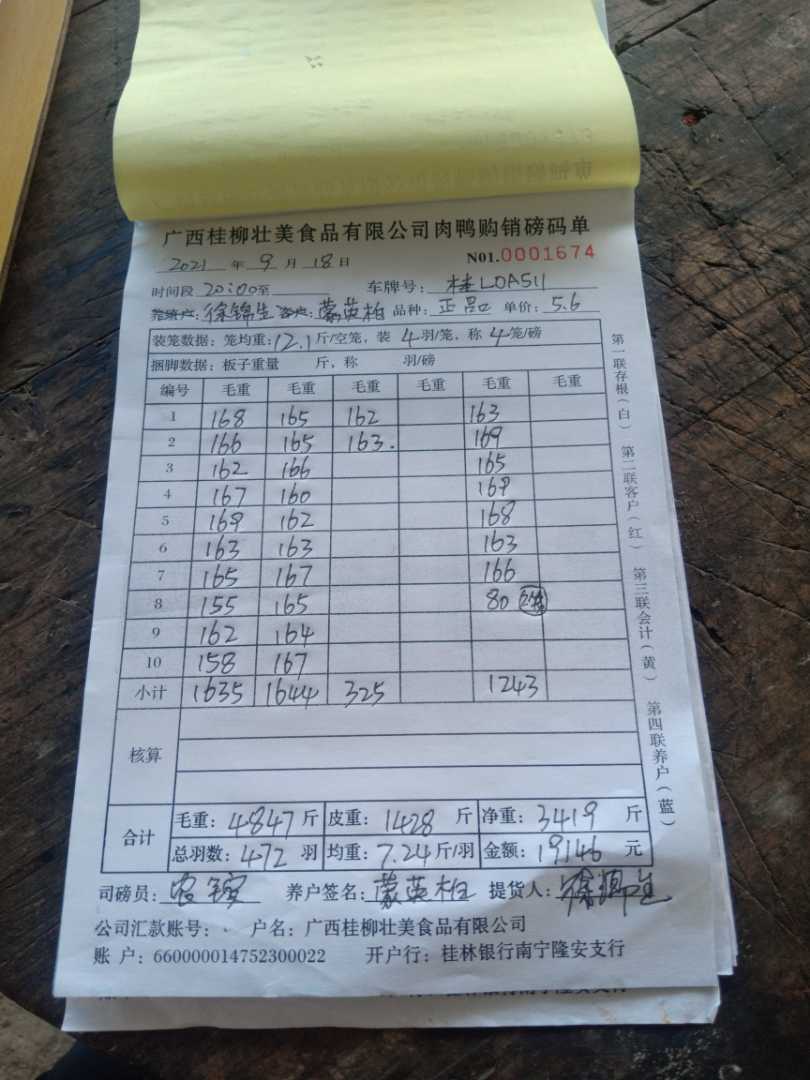 广西桂柳壮美食品有限公司肉鸭购销磅码单
2021 年 9 月 18 日 N01.0001674
时间段 20:00至 车牌号: 桂L0A511
徐锦生 客户: 蒙英柏 品种: 正品 单价: 5.6
装笼数据: 笼均重: 12.1 斤/空笼, 装 4 羽/笼, 称 4 笼/磅
捆脚数据: 板子重量 斤, 称 羽/磅
编号 毛重 毛重 毛重 毛重 毛重 毛重
1 168 165 162 163
2 166 165 163. 169
3 162 166 165
4 167 160 169
5 169 162 168
6 163 163 163
7 165 167 166
8 155 165 80
9 162 164
10 158 167
小计 1635 1644 325 1243
核算
合计
毛重: 4847 斤 皮重: 1428 斤 净重: 3419 斤
总羽数: 472 羽 均重: 7.24 斤/羽 金额: 19146 元
司磅员: 养户签名: 蒙英柏 提货人: 徐锦生
公司汇款账号: 户名: 广西桂柳壮美食品有限公司
账 户: 660000014752300022 开户行: 桂林银行南宁隆安支行
第一联存根(白) 第二联客户(红) 第三联会计(黄) 第四联养户(蓝)